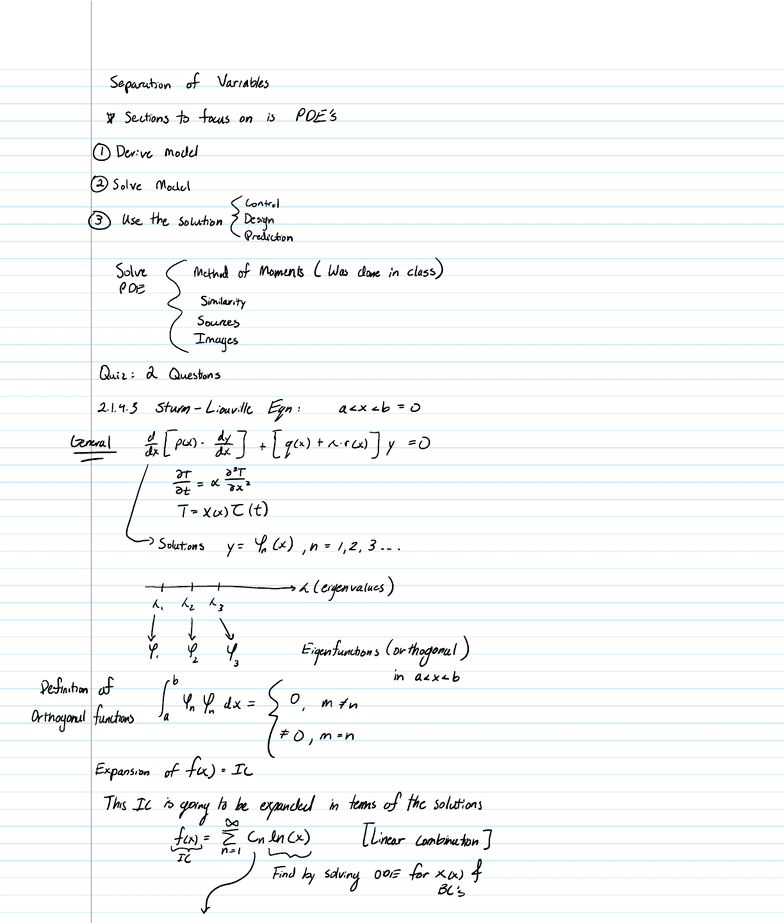 Separation of Variables
* Sections to focus on is PDE's
① Derive model
② Solve Model
③ Use the solution { Control
Design
Prediction
Solve PDE { Method of Moments (Was done in class)
Similarity
Sources
Images
Quiz: 2 Questions
2.1.4.3 Sturm-Liouville Eqn: a<x<b = 0
General d/dx [p(x) · dy/dx] + [q(x) + λ·r(x)] y = 0
∂T/∂t = α ∂²T/∂x²
T = X(x) τ(t)
Solutions y = φₙ(x), n = 1, 2, 3 ...
λ (eigenvalues)
λ₁ λ₂ λ₃
φ₁ φ₂ φ₃ Eigenfunctions (orthogonal)
in a<x<b
Definition of Orthogonal functions ∫ₐᵇ φₙ φₙ dx = { 0, m ≠ n
≠ 0, m = n
Expansion of f(x) = IC
This IC is going to be expanded in terms of the solutions
f(x) = ∑ₙ₌₁^∞ Cn ln(x) [Linear Combination]
IC
Find by solving ODE for X(x) &
BC's